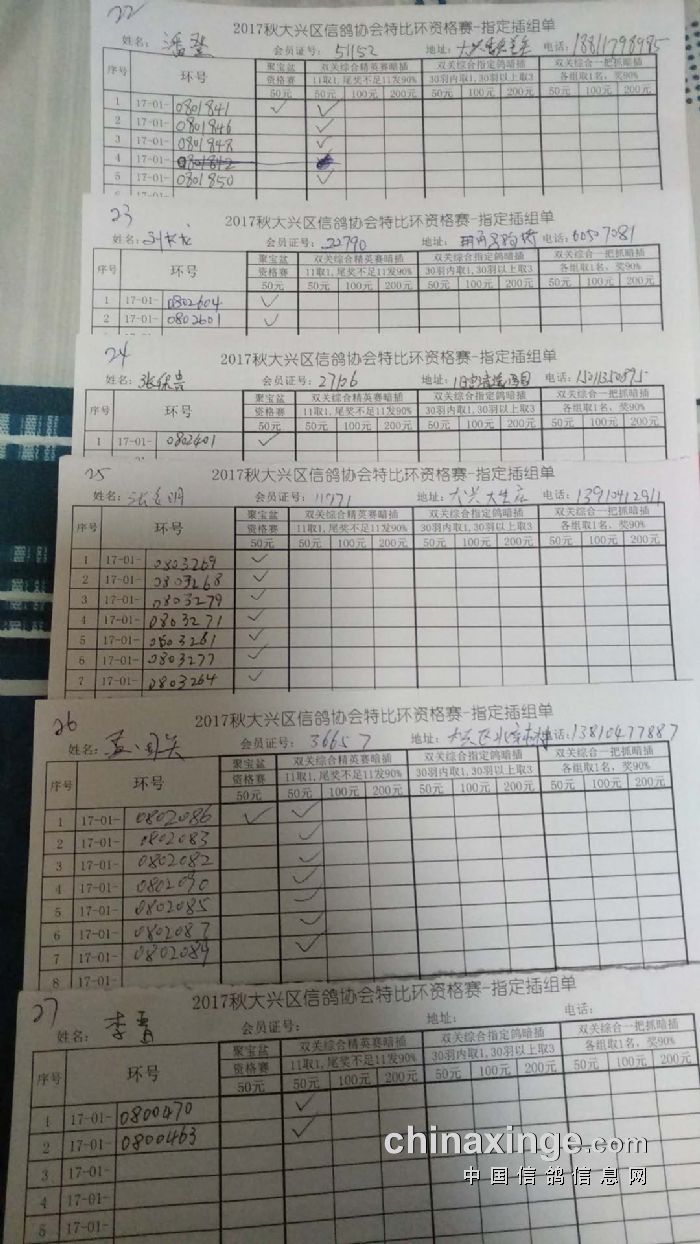 22
2017秋大兴区信鸽协会特比环资格赛-指定插组单
姓名：潘登 会员证号：51152 地址：大兴 电话：18811798995
序号 环号 聚宝盆 双关综合精英赛暗插 双关综合指定鸽暗插 双关综合一把抓暗插
资格赛 11取1,尾奖不足11发90% 30羽内取1,30羽以上取3 各组取1名，奖90%
50元 50元 100元 200元 50元 100元 200元 50元 100元 200元
1 17-01- 0801841 ✓ ✓
2 17-01- 0801846 ✓
3 17-01- 0801848 ✓
4 17-01- 0801842
5 17-01- 0801850 ✓
23
2017秋大兴区信鸽协会特比环资格赛-指定插组单
姓名： 会员证号：22790 地址： 电话：60507081
序号 环号 聚宝盆 双关综合精英赛暗插 双关综合指定鸽暗插 双关综合一把抓暗插
资格赛 11取1,尾奖不足11发90% 30羽内取1,30羽以上取3 各组取1名，奖90%
50元 50元 100元 200元 50元 100元 200元 50元 100元 200元
1 17-01- 0802604 ✓
2 17-01- 0802601 ✓
24
2017秋大兴区信鸽协会特比环资格赛-指定插组单
姓名：张保贵 会员证号：27126 地址： 电话：15011350895
序号 环号 聚宝盆 双关综合精英赛暗插 双关综合指定鸽暗插 双关综合一把抓暗插
资格赛 11取1,尾奖不足11发90% 30羽内取1,30羽以上取3 各组取1名，奖90%
50元 50元 100元 200元 50元 100元 200元 50元 100元 200元
1 17-01- 0802401 ✓
25
2017秋大兴区信鸽协会特比环资格赛-指定插组单
姓名： 会员证号：11771 地址：大兴大生庄 电话：13910412911
序号 环号 聚宝盆 双关综合精英赛暗插 双关综合指定鸽暗插 双关综合一把抓暗插
资格赛 11取1,尾奖不足11发90% 30羽内取1,30羽以上取3 各组取1名，奖90%
50元 50元 100元 200元 50元 100元 200元 50元 100元 200元
1 17-01- 0803269 ✓
2 17-01- 0803268 ✓
3 17-01- 0803279 ✓
4 17-01- 0803271 ✓
5 17-01- 0803261 ✓
6 17-01- 0803277 ✓
7 17-01- 0803264 ✓
26
2017秋大兴区信鸽协会特比环资格赛-指定插组单
姓名： 会员证号：36657 地址：大兴区 电话：13810477887
序号 环号 聚宝盆 双关综合精英赛暗插 双关综合指定鸽暗插 双关综合一把抓暗插
资格赛 11取1,尾奖不足11发90% 30羽内取1,30羽以上取3 各组取1名，奖90%
50元 50元 100元 200元 50元 100元 200元 50元 100元 200元
1 17-01- 0802086 ✓ ✓
2 17-01- 0802083 ✓
3 17-01- 0802082 ✓
4 17-01- 0802090 ✓
5 17-01- 0802085 ✓
6 17-01- 0802087 ✓
7 17-01- 0802084 ✓
8 17-01-
27
2017秋大兴区信鸽协会特比环资格赛-指定插组单
姓名：李勇 会员证号： 地址： 电话：
序号 环号 聚宝盆 双关综合精英赛暗插 双关综合指定鸽暗插 双关综合一把抓暗插
资格赛 11取1,尾奖不足11发90% 30羽内取1,30羽以上取3 各组取1名，奖90%
50元 50元 100元 200元 50元 100元 200元 50元 100元 200元
1 17-01- 0800470 ✓
2 17-01- 0800463 ✓
3 17-01-
4 17-01-
5 17-01-
chinaxinge.com
中国信鸽信息网